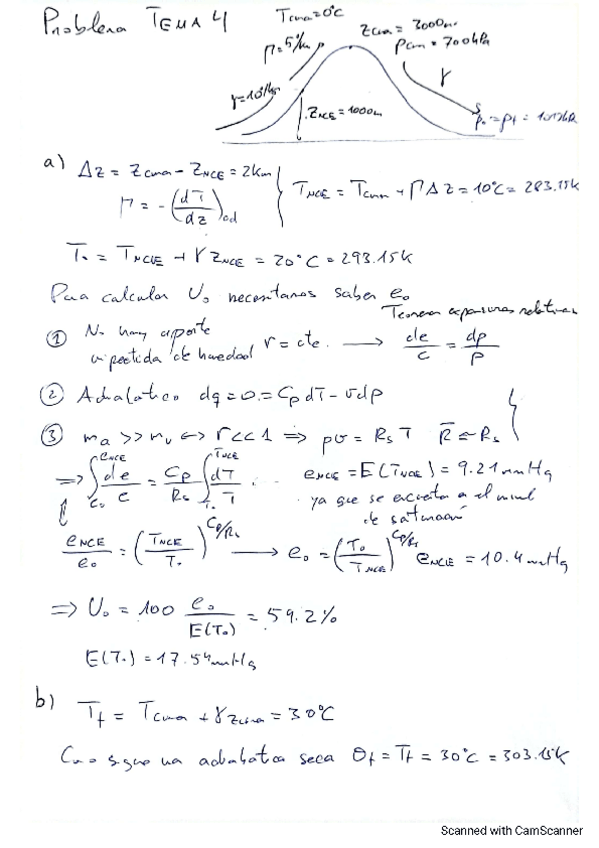 Problema TEMA 4
Tcima = 0°C
Zcima = 3000m
Pcima = 700hPa
Γ = 5°/km
γ = 10°/km
ZNCE = 1000m
γ
p₀ = pf = 1013hPa
a) ΔZ = Zcima - ZNCE = 2km
Γ = -(dT/dz)ad
TNCE = Tcima + ΓΔZ = 10°C = 283.15K
T₀ = TNCE + γ ZNCE = 20°C = 293.15K
Para calcular U₀ necesitamos saber e₀
① No hay aporte
ni pérdida de humedad r = cte. → de/e = dp/p
Teorema expansiones relativas
② Adiabático dq = 0 = Cp dT - v dp
③ ma >> mv ↔ r << 1 ⇒ pv = Rs T R̅ ≃ Rs
⇒ ∫e₀^eNCE de/e = Cp/Rs ∫T₀^TNCE dT/T
eNCE = E(TNCE) = 9.21mmHg
ya que se encuentra en el nivel
de saturación
eNCE/e₀ = (TNCE/T₀)^Cp/Rs → e₀ = (T₀/TNCE)^Cp/Rs eNCE = 10.4mmHg
⇒ U₀ = 100 e₀/E(T₀) = 59.2%
E(T₀) = 17.54mmHg
b) Tf = Tcima + γ Zcima = 30°C
Como sigue una adiabática seca θf = Tf = 30°C = 303.15K
Scanned with CamScanner